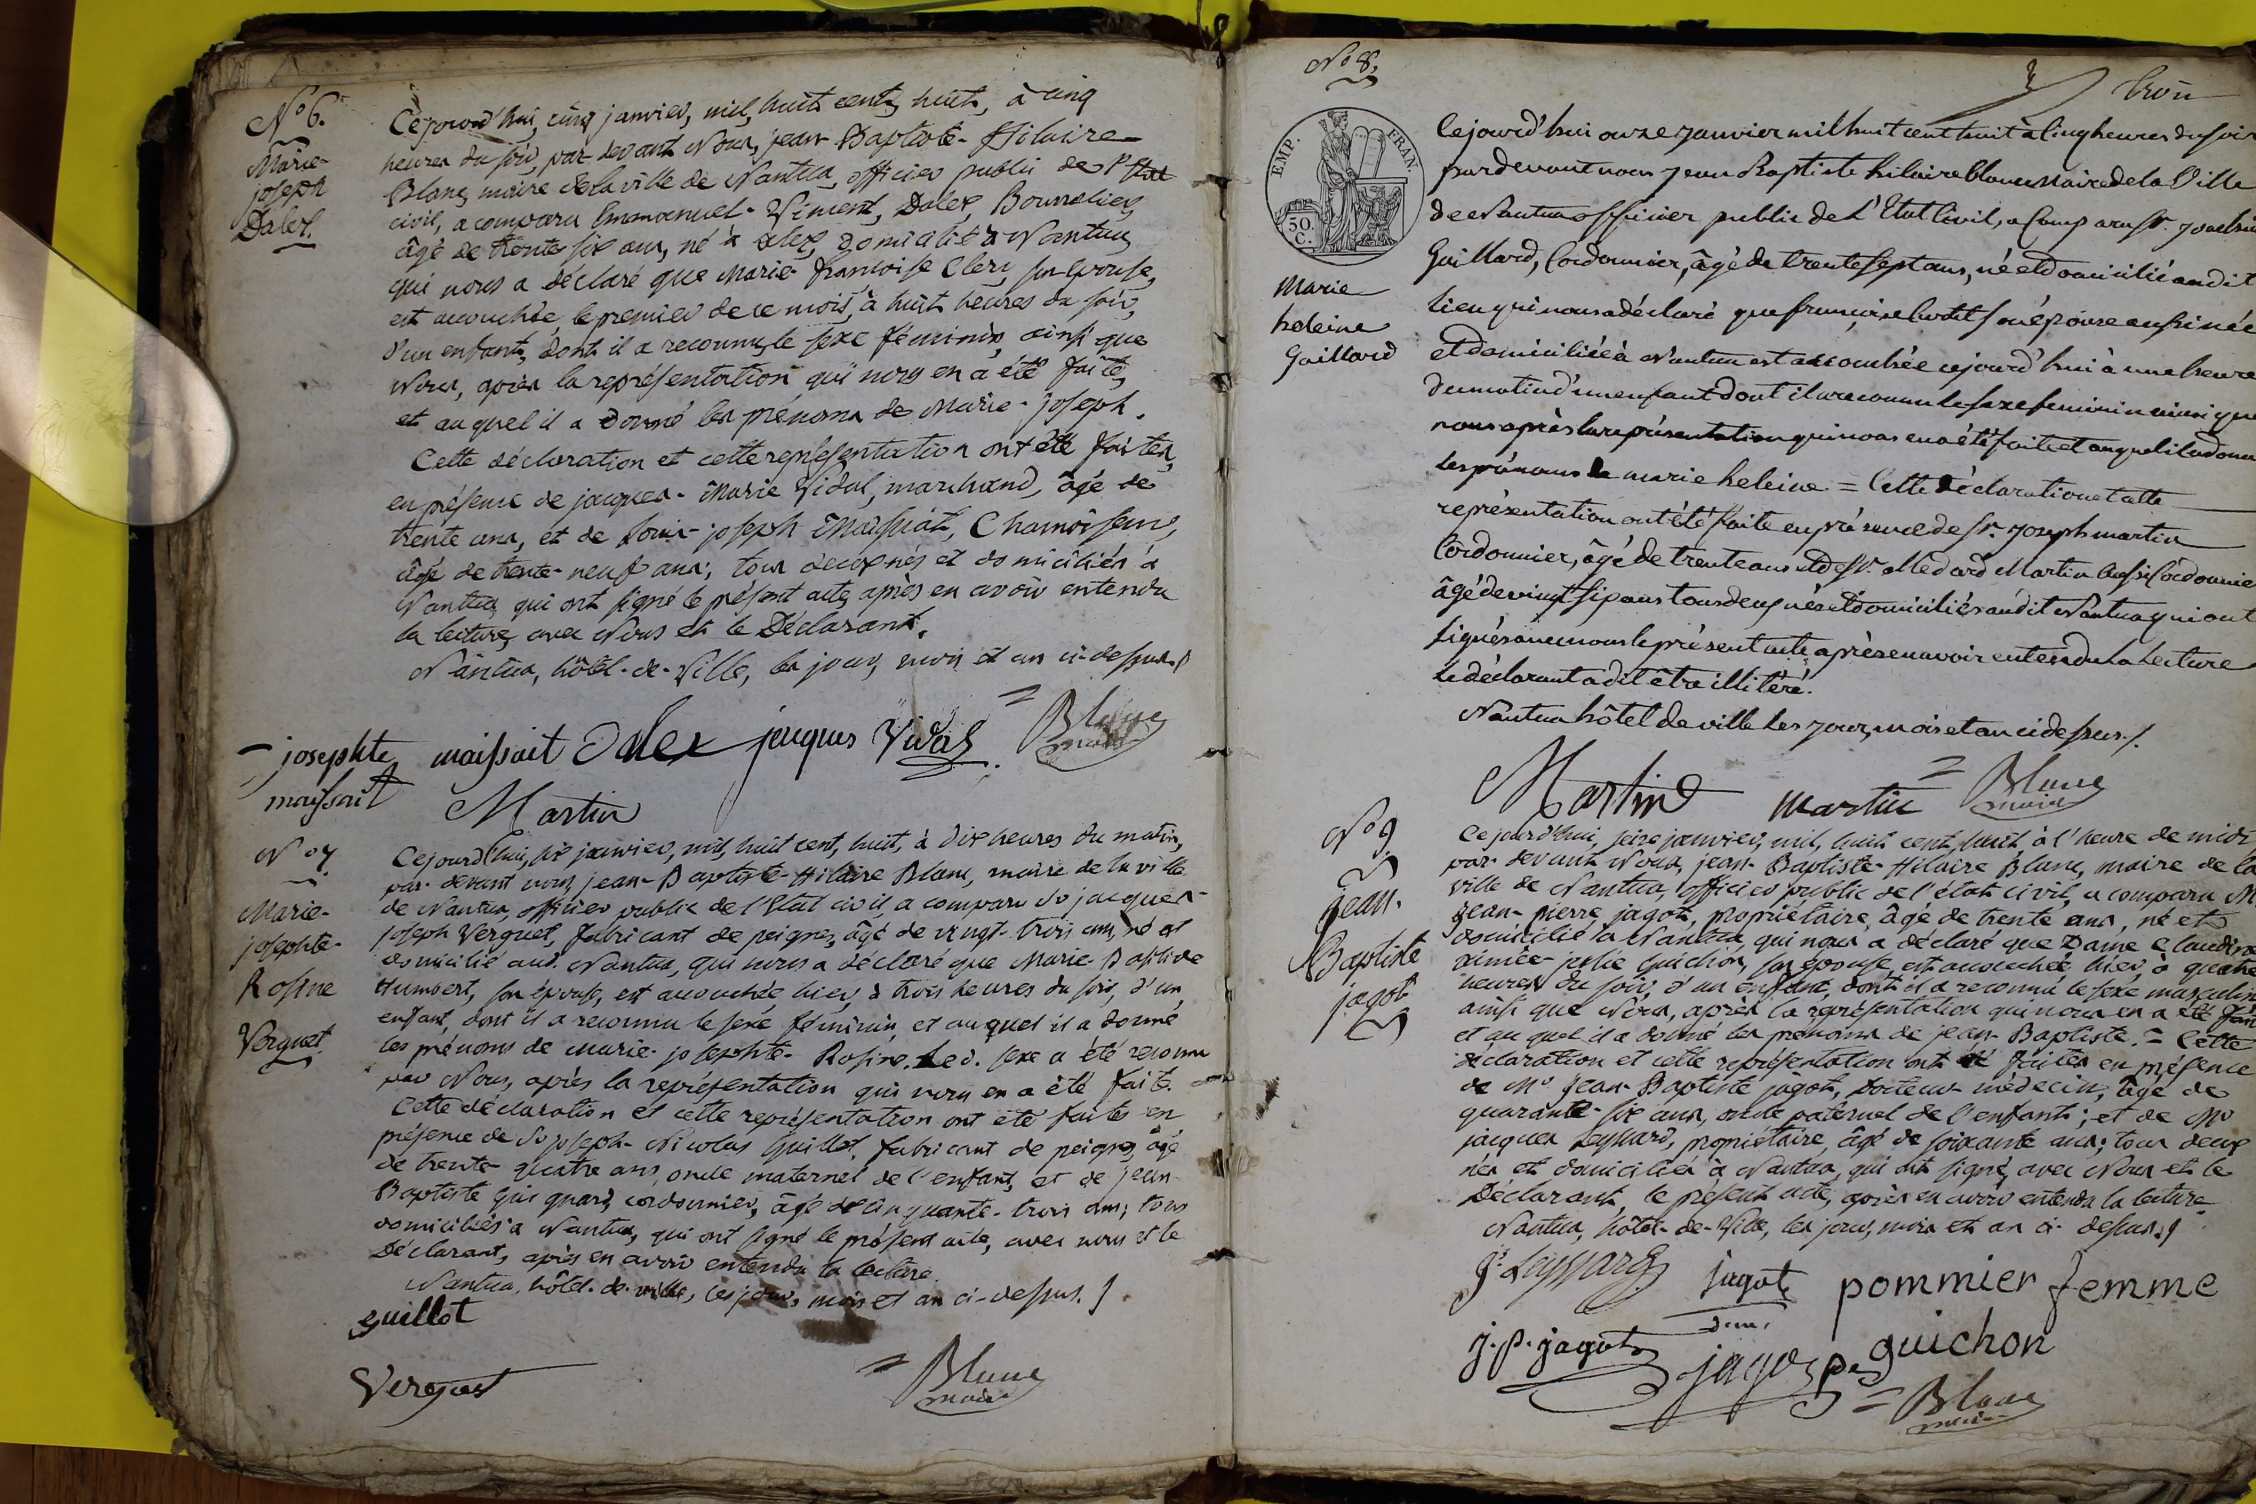 N° 6.
Marie-
joseph
Dalex.
Cejourd'hui, cinq janvier, mil, huit cent, huit, à cinq
heures du soir, par devant Nous, jean-Baptiste-Hilaire
Blanc, maire de la ville de Nantua, officier public de l'État
civil, a comparu Emmanuel-Viment, Dalex, Bourrelier,
âgé de trente six ans, né à alex, domicilié à Nantua,
qui nous a déclaré que Marie-françoise Clerc, son épouse,
est accouchée, le premier de ce mois, à huit heures du soir,
d'un enfant, dont il a reconnu le sexe féminin, ainsi que
Nous, après la représentation qui nous en a été faite,
et auquel il a donné les prénoms de Marie-joseph.
Cette déclaration et cette représentation ont été faites,
en présence de jacques-Marie Vidal, marchand, âgé de
trente ans, et de Louis-joseph Maissiat, Chamoiseur,
âgé de trente-neuf ans; tous deux nés et domiciliés à
Nantua, qui ont signé le présent acte, après en avoir entendu
la lecture, avec Nous et le Déclarant.
Nantua, hôtel-de-Ville, les jour, mois et an ci-dessus./
josephte maissait Dalex jacques Vidal = Blanc
maire
maissait Martin
N° 7
Marie-
josephte-
Rosine
Verguet.
Cejourd'hui, six janvier, mil, huit cent, huit, à dix heures du matin,
par-devant nous, jean-Baptiste-Hilaire Blanc, maire de la ville
de Nantua, officier public de l'Etat civil, a comparu Sr jacques-
joseph Verguet, fabricant de peignes, âgé de vingt-trois ans, né et
domicilié aud. Nantua, qui nous a déclaré que Marie Basilide
Humbert, son épouse, est accouchée hier, à trois heures du soir, d'un
enfant, dont il a reconnu le sexe féminin, et auquel il a donné
les prénoms de Marie-josephte-Rosine. Led. sexe a été reconnu
par Nous, après la représentation qui nous en a été faite.
Cette déclaration et cette représentation ont été faites en
présence de Sr joseph-Nicolas Guillot, fabricant de peignes, âgé
de trente-quatre ans, oncle maternel de l'enfant, et de jean-
Baptiste guinguard, cordonnier, âgé de cinquante-trois ans; tous
domiciliés à Nantua, qui ont signé le présent acte, avec nous et le
Déclarant, après en avoir entendu la lecture.
Nantua, hôtel-de-ville, les jour, mois et an ci-dessus./
guillot
Verguet = Blanc
maire
N° 8.
EMP. FRAN.
50.
C.
Marie
heleine
Gaillard
Cejourd'hui onze janvier mil huit cent huit à cinq heures du soir
pardevant nous jean Baptiste hilaire Blanc Maire de la Ville
de Nantua officier public de l'Etat Civil, a Comparu Sr. joachim
Gaillard, Cordonnier, âgé de trente sept ans, né et domicilié audit
lieu qui nous a déclaré que françoise son épouse aussi née
et domiciliée à Nantua est accouchée cejourd'hui à une heure
du matin d'un enfant dont il a reconnu le sexe feminin ainsi que
nous après la représentation qui nous en a été faite et auquel il a donné
les prénoms de marie heleine = Cette déclaration et cette
représentation ont été faite en présence de Sr. joseph martin
Cordonnier, âgé de trente ans et de Sr. Medard Martin aussi Cordonnier
âgé de vingt six ans tous deux nés et domiciliés audit Nantua qui ont
signés avec nous le présent acte après en avoir entendu la lecture
Le déclarant a dit être illitéré.
Nantua hôtel de ville les jour, mois et an ci dessus./.
Martin martin = Blanc
maire
N° 9.
Jean-
Baptiste
jagot
Cejourd'hui, seize janvier, mil, huit cent, huit, à l'heure de midi
par-devant Nous, jean-Baptiste-Hilaire Blanc, maire de la
ville de Nantua, officier public de l'état civil, a comparu M.
jean-pierre jagot, propriétaire, âgé de trente ans, né et
domicilié à Nantua, qui nous a déclaré que Dame Claudine
aimée-josephe Guichon, son épouse, est accouchée, hier, à quatre
heures du soir, d'un enfant, dont il a reconnu le sexe masculin
ainsi que Nous, après la représentation qui nous en a été faite
et auquel il a donné les prénoms de jean-Baptiste. = Cette
déclaration et cette représentation ont été faites en présence
de Mr jean-Baptiste jagot, docteur médecin, âgé de
quarante-six ans, oncle paternel de l'enfant; et de Mr
jacques Leyssard, propriétaire, âgé de soixante ans; tous deux
nés et domiciliés à Nantua, qui ont signé, avec Nous et le
Déclarant, le présent acte, après en avoir entendu la lecture.
Nantua, hôtel-de-Ville, les jour, mois et an ci-dessus./
J. Leyssard jagot pommier femme
j.p. jagot d.m. guichon
jagot = Blanc
maire